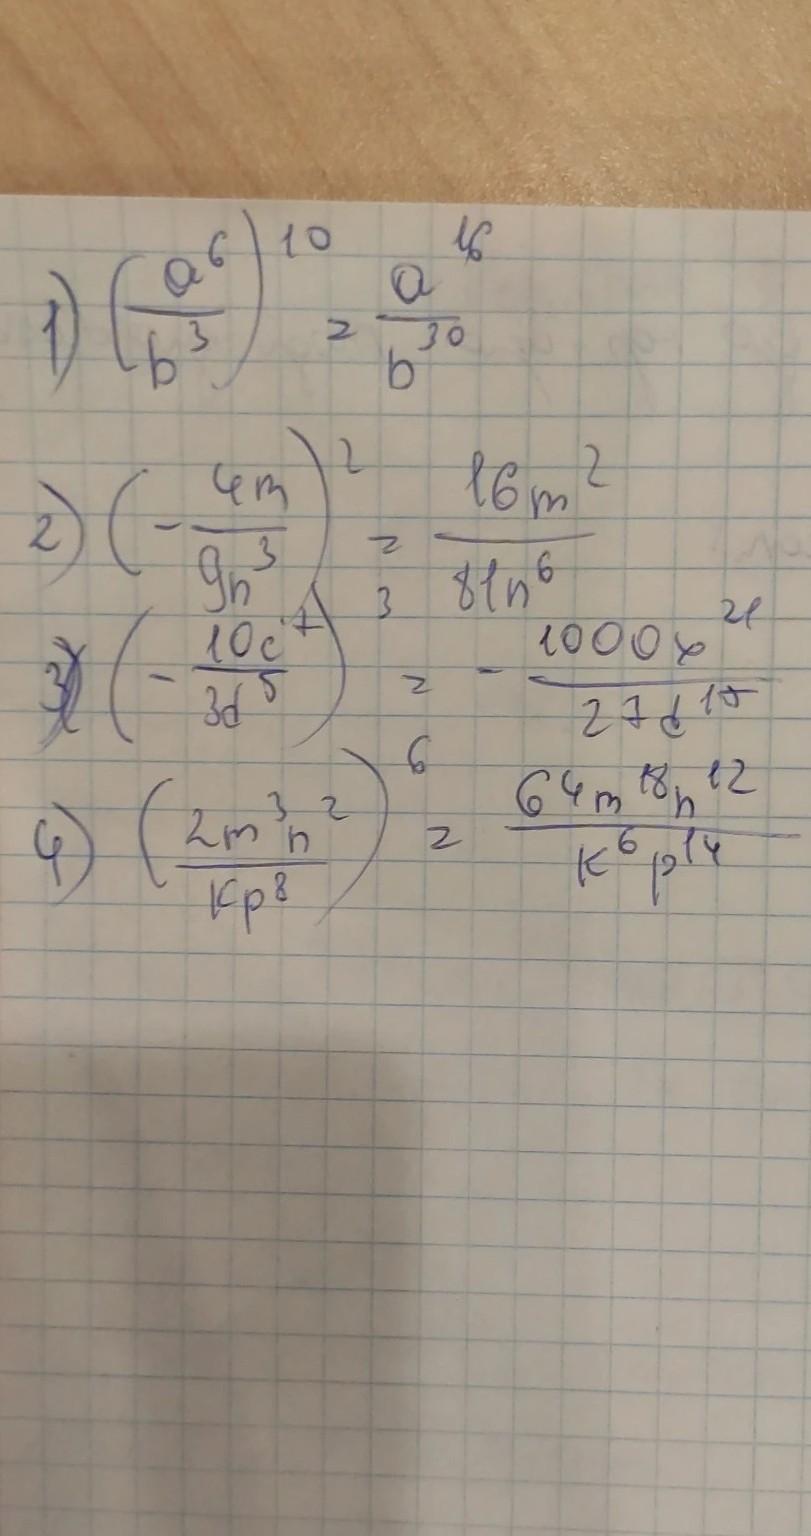 1) (a⁶/b³)¹⁰ = a¹⁶/b³⁰
2) (-4m/9n³)² = 16m²/81n⁶
3) (-10c⁷/3d⁵)³ = -1000c²¹/27d¹⁵
4) (2m³n²/kp⁸)⁶ = 64m¹⁸n¹²/k⁶p¹⁴